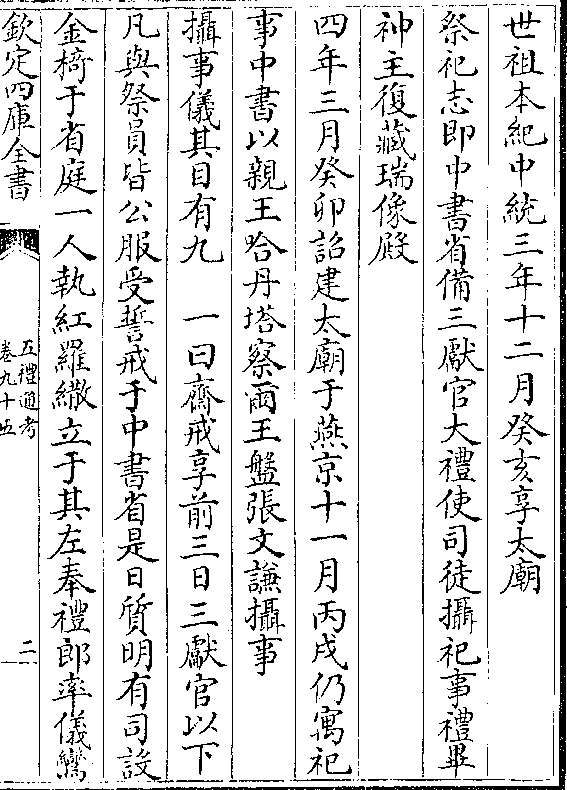 世祖本紀中統三年十二月癸亥享太廟
祭祀志即中書省備三獻官大禮使司徒攝祀事禮畢
神主復藏瑞像殿
四年三月癸卯詔建太廟于燕京十一月丙戌仍寓祀
事中書以親王哈丹塔察爾王盤張文謙攝事
攝事儀其目有九　一曰齋戒享前三日三獻官以下
凡與祭員皆公服受誓戒于中書省是日質明有司設
金椅于省庭一人執紅羅繖立于其左奉禮郎率儀鸞
欽定四庫全書
五禮通考
卷九十五
二